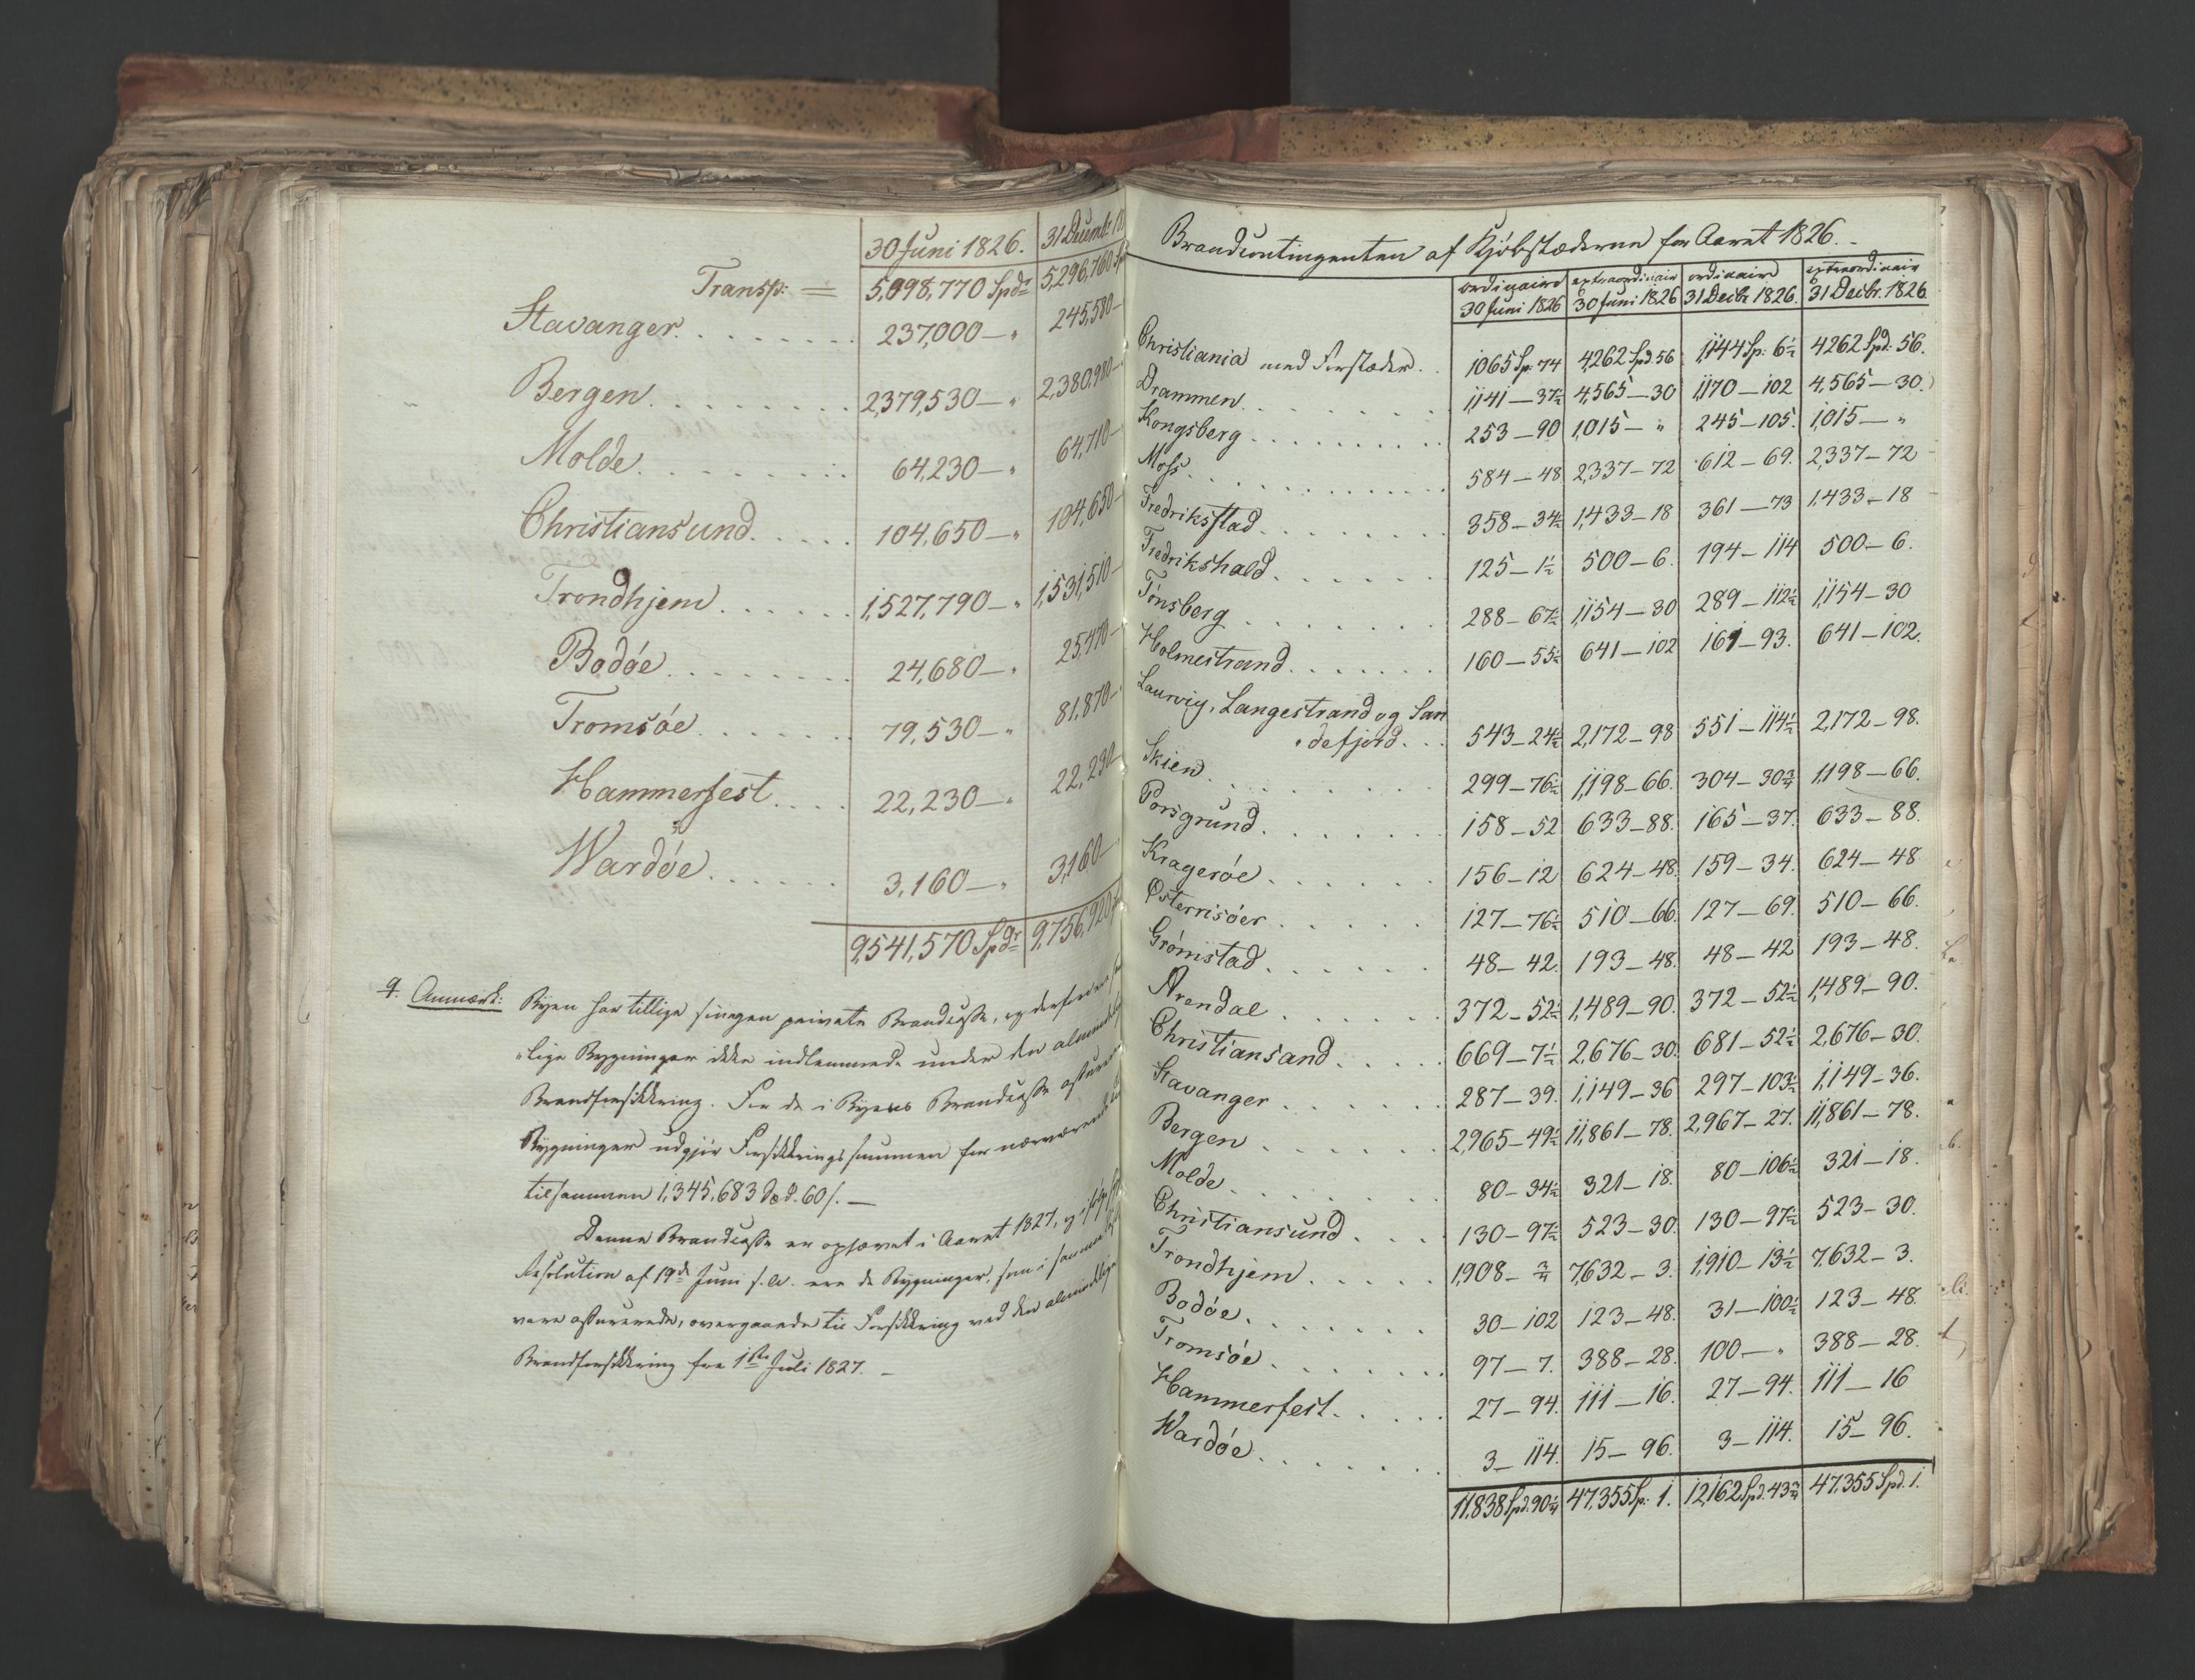 30 Juni 1826. 31 Decemb:
Transp: = 5,098,770 Spdr 5,296,760
Stavanger. 237,000 — " 245,580 —
Bergen. 2,379,530 — " 2,380,980 —
Molde. 64,230 — " 64,710 —
Christiansund. 104,650 — " 104,650 —
Trondhjem. 1,527,790 — " 1,531,510 —
Bodøe. 24,680 — " 25,470 —
Tromsøe. 79,530 — " 81,870 —
Hammerfest. 22,230 — " 22,230 —
Wardøe. 3,160 — " 3,160 —
9,541,570 Spdr 9,756,920
Anmærk: Byen har tillige sin egen private Brandcasse, og
"lige Bygninger ikke indlemmede under den almindelig
Brandforsikkring. For de i Byens Brandcasse assurerede
Bygninger udgjør Forsikkringssummen for nærværende
tilsammen 1,345,683 Spd. 60 s. —
Denne Brandcasse er ophævet i Aaret 1827, og ifølge
Resolution af 19de Juni s. A. ere de Bygninger, som i samme
vare assurerede, overgaaende til Forsikkring ved den almindelige
Brandforsikkring fra 1ste Juli 1827. —
Brandcontingenten af Kjøbstæderne for Aaret 1826. —
ordinaire extraordinair ordinaire extraordinair
30 Juni 1826 30 Juni 1826 31 Decbr 1826. 31 Decbr. 1826.
Christiania med Forstæder. 1065 Sp. 74 4,262 Spd. 56 1,144 Sp: 6½ 4262 Spd: 56.
Drammen. 1,141 — 37½ 4,565 — 30 1,170 — 102 4,565 — 30.
Kongsberg. 253 — 90 1,015 — " 245 — 105. 1,015 — "
Moss. 584 — 48 2,337 — 72 612 — 69. 2,337 — 72
Fredriksstad. 358 — 34½ 1,433 — 18 361 — 73 1,433 — 18
Fredrikshald. 125 — 1½ 500 — 6. 194 — 114 500 — 6.
Tønsberg. 288 — 67½ 1,154 — 30 289 — 112½ 1,154 — 30
Holmestrand. 160 — 55½ 641 — 102 161 — 93. 641 — 102.
Laurvig, Langestrand og San
"defjord. 543 — 24½ 2,172 — 98 551 — 114½ 2,172 — 98.
Skien. 299 — 76½ 1,198 — 66. 304 — 30¾ 1,198 — 66.
Porsgrund. 158 — 52 633 — 88. 165 — 37. 633 — 88.
Kragerøe. 156 — 12 624 — 48. 159 — 34. 624 — 48
Østerrisøer. 127 — 76½ 510 — 66. 127 — 69. 510 — 66.
Grømstad. 48 — 42. 193 — 48. 48 — 42 193 — 48.
Arendal. 372 — 52½ 1,489 — 90. 372 — 52½ 1,489 — 90.
Christiansand. 669 — 7½ 2,676 — 30. 681 — 52½ 2,676 — 30.
Stavanger. 287 — 39. 1,149 — 36 297 — 103½ 1,149 — 36.
Bergen. 2,965 — 49½ 11,861 — 78. 2,967 — 27. 11,861 — 78.
Molde. 80 — 34½ 321 — 18. 80 — 106½ 321 — 18.
Christiansund. 130 — 97½ 523 — 30. 130 — 97½ 523 — 30.
Trondhjem. 1,908 — ¾ 7,632 — 3. 1,910 — 13½ 7,632 — 3.
Bodøe. 30 — 102 123 — 48. 31 — 100½ 123 — 48.
Tromsøe. 97 — 7. 388 — 28. 100 — " 388 — 28.
Hammerfest. 27 — 94. 111 — 16. 27 — 94. 111 — 16
Wardøe. 3 — 114. 15 — 96. 3 — 114. 15 — 96.
11,838 Spd. 90¼ 47,355 Sp. 1. 12,162 Spd. 43¾ 47,355 Spd. 1.